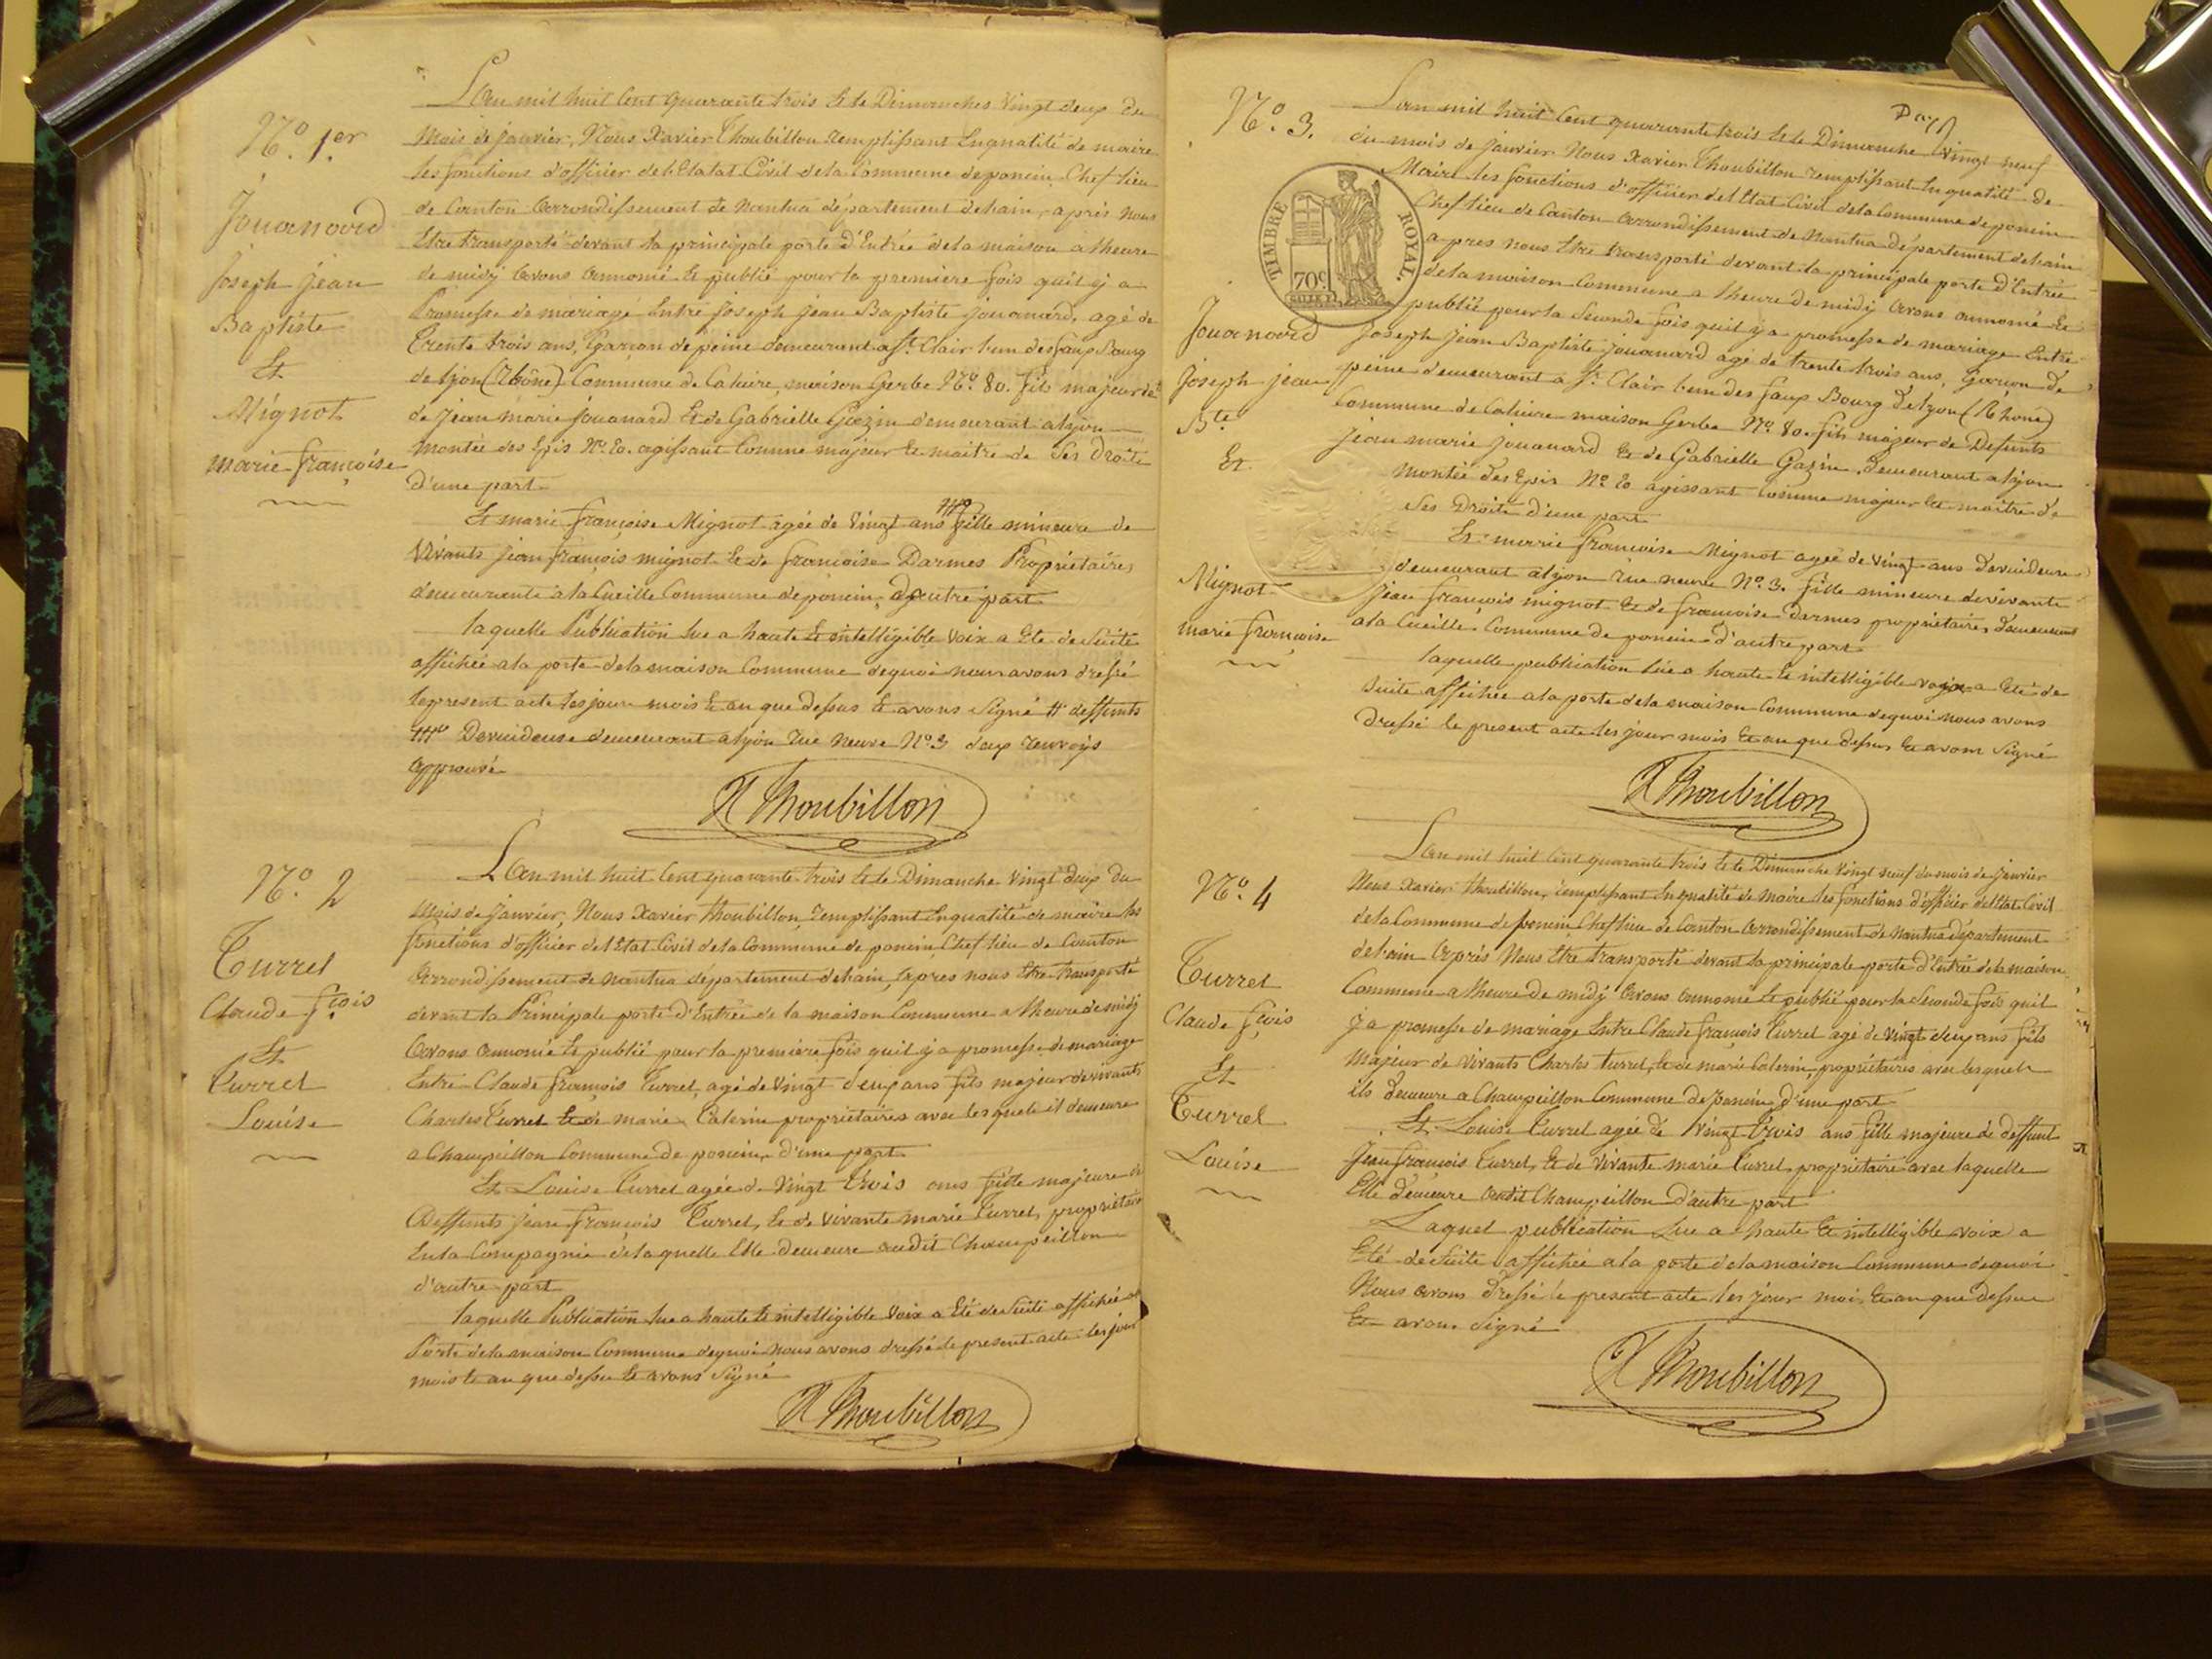 N.o 1.er
Jouanard
Joseph Jean
Baptiste
Et
Mignot
marie françoise
L'an mil huit Cent quarante trois Et le Dimanches Vingt deux du
Mois de janvier, Nous Xavier Thoubillon remplissant Enqualité de maire
les fonctions d'officier de l'Etatat Civil dela Commune deponcin Chef lieu
de Canton Arrondissement de Nantua département delain, après nous
Etre transporté devant la principale porte d'Entrée dela maison a lheure
de midy avons annoncé Et publié pour la premiere fois quil y a
Promesse de mariage Entre Joseph Jean Baptiste jouanard, agé de
Trente trois ans, Garçon de peine demeurant a St. Clair l'un des faux Bourg
de lyon (Rhône) Commune de Caluire, maison Gerbe N.o 80. fils majeur de #
de Jean marie Jouanard Et de Gabrielle Gazin demeurant alyon
Montée des Epis N.o 20. agissant Comme majeur Et maitre de Ses Droits
D'une part
Et marie françoise Mignot agée de Vingt ans fille mineure de
Vivants Jean françois mignot Et de françoise Darmes Propriétaires
demeurants ala Cueille Commune deponcin, D'autre part
laquelle Publication lue a haute Et intelligible Voix a Eté de Suite
affichée ala porte dela maison Commune dequoi nous avons dressé
lepresent acte les jour mois Et an que dessus Et avons Signé # deffunts
Devideuse demeurant alyon Rue Neuve N.o 3 deux renvoys
approuvé
X Thoubillon
N.o 2
Turrel
Claude fçois
Et
Turrel
Louise
L'an mil huit Cent quarante trois Et le Dimanche Vingt deux du
Mois de janvier, Nous Xavier Thoubillon, remplissant Enqualité de maire les
fonctions d'officier del Etat Civil dela Commune de poncin Chef lieu de Canton
Arrondissement de Nantua département delain, après nous Etre transporté
devant la Principale porte d'Entrée de la maison Commune a lheure de midy
Avons annoncé Et publié pour la premiere fois quil y a promesse de mariage
Entre Claude françois Turrel, agé de Vingt deux ans fils majeur de vivants
Charles Turrel Et de marie Caterin propriétaires avec lesquels il demeure
a Champeillon Commune de poncin, d'une part
Et Louise Turrel agée de Vingt trois ans fille majeure de
Deffunts jean françois Turrel, Et de vivante marie Turrel, propriétaire
En la Compagnie delaquelle Elle demeure audit Champeillon
d'autre part
laquelle Publication lue a haute Et intelligible Voix a Eté de Suite affichée a la
Porte dela maison Commune dequoi nous avons dressé le present acte les jour
mois Et an que dessus Et avons Signé
X Thoubillon
N.o 3.
TIMBRE ROYAL.
70c.
Jouanard
Joseph jean
B.te
Et
Mignot
marie françoise
L'an mil huit Cent quarante trois Et le Dimanche Vingt neuf
du mois de janvier Nous Xavier Thoubillon remplissant Enqualité de
Maire les fonctions d'officier del Etat Civil dela Commune de poncin
Chef lieu de Canton Arrondissement de Nantua département delain
après nous Etre transporté devant la principale porte d'Entrée
dela maison Commune a lheure de midy avons annoncé Et
publié pour la Seconde fois quil y a promesse de mariage Entre
Joseph Jean Baptiste Jouanard agé de trente trois ans, Garçon de
peine demeurant a St. Clair l'un des faux Bourg de lyon (Rhone)
Commune de Caluire maison Gerbe N.o 80. fils majeur de Defunts
Jean marie jouanard Et de Gabrielle Gazin, demeurant alyon
Montée des Epis N.o 20 agissant Comme majeur Et maitre de
Ses Droits d'une part
Et marie françoise Mignot agée de Vingt ans Devideuse
demeurant alyon rue neuve N.o 3. fille mineure de vivants
Jean françois mignot Et de françoise darmes propriétaires, demeurant
ala Cueille Commune de poncin d'autre part
laquelle publication lue a haute Et intelligible voix a Eté de
Suite affichée ala porte dela maison Commune dequoi nous avons
dressé le present acte les jour mois Et an que dessus Et avons Signé
X Thoubillon
N.o 4
Turrel
Claude fçois
Et
Turrel
Louise
L'an mil huit Cent quarante trois Et le Dimanche Vingt neuf du mois de janvier
Nous Xavier Thoubillon, remplissant Enqualité de Maire les fonctions d'officier del Etat Civil
dela Commune de poncin Chef lieu de Canton Arrondissement de Nantua département
delain Après Nous Etre transporté devant la principale porte d'Entrée dela maison
Commune a lheure de midy Avons annoncé Et publié pour la Seconde fois quil
y a promesse de mariage Entre Claude françois Turrel agé de Vingt deux ans fils
Majeur de vivants Charles Turrel, Et de marie Caterin, propriétaires avec lesquels
ils demeure a Champeillon Commune de poncin, d'une part
Et Louise Turrel agée de Vingt trois ans fille majeure de deffunt
Jean françois Turrel, Et de vivante marie Turrel, propriétaire avec laquelle
Elle demeure audit Champeillon d'autre part
Laquel publication lue a haute Et intelligible voix a
Eté de suite affichée ala porte dela maison Commune dequoi
Nous avons dressé le present acte les jour mois Et an que dessus
Et avons Signé
X Thoubillon